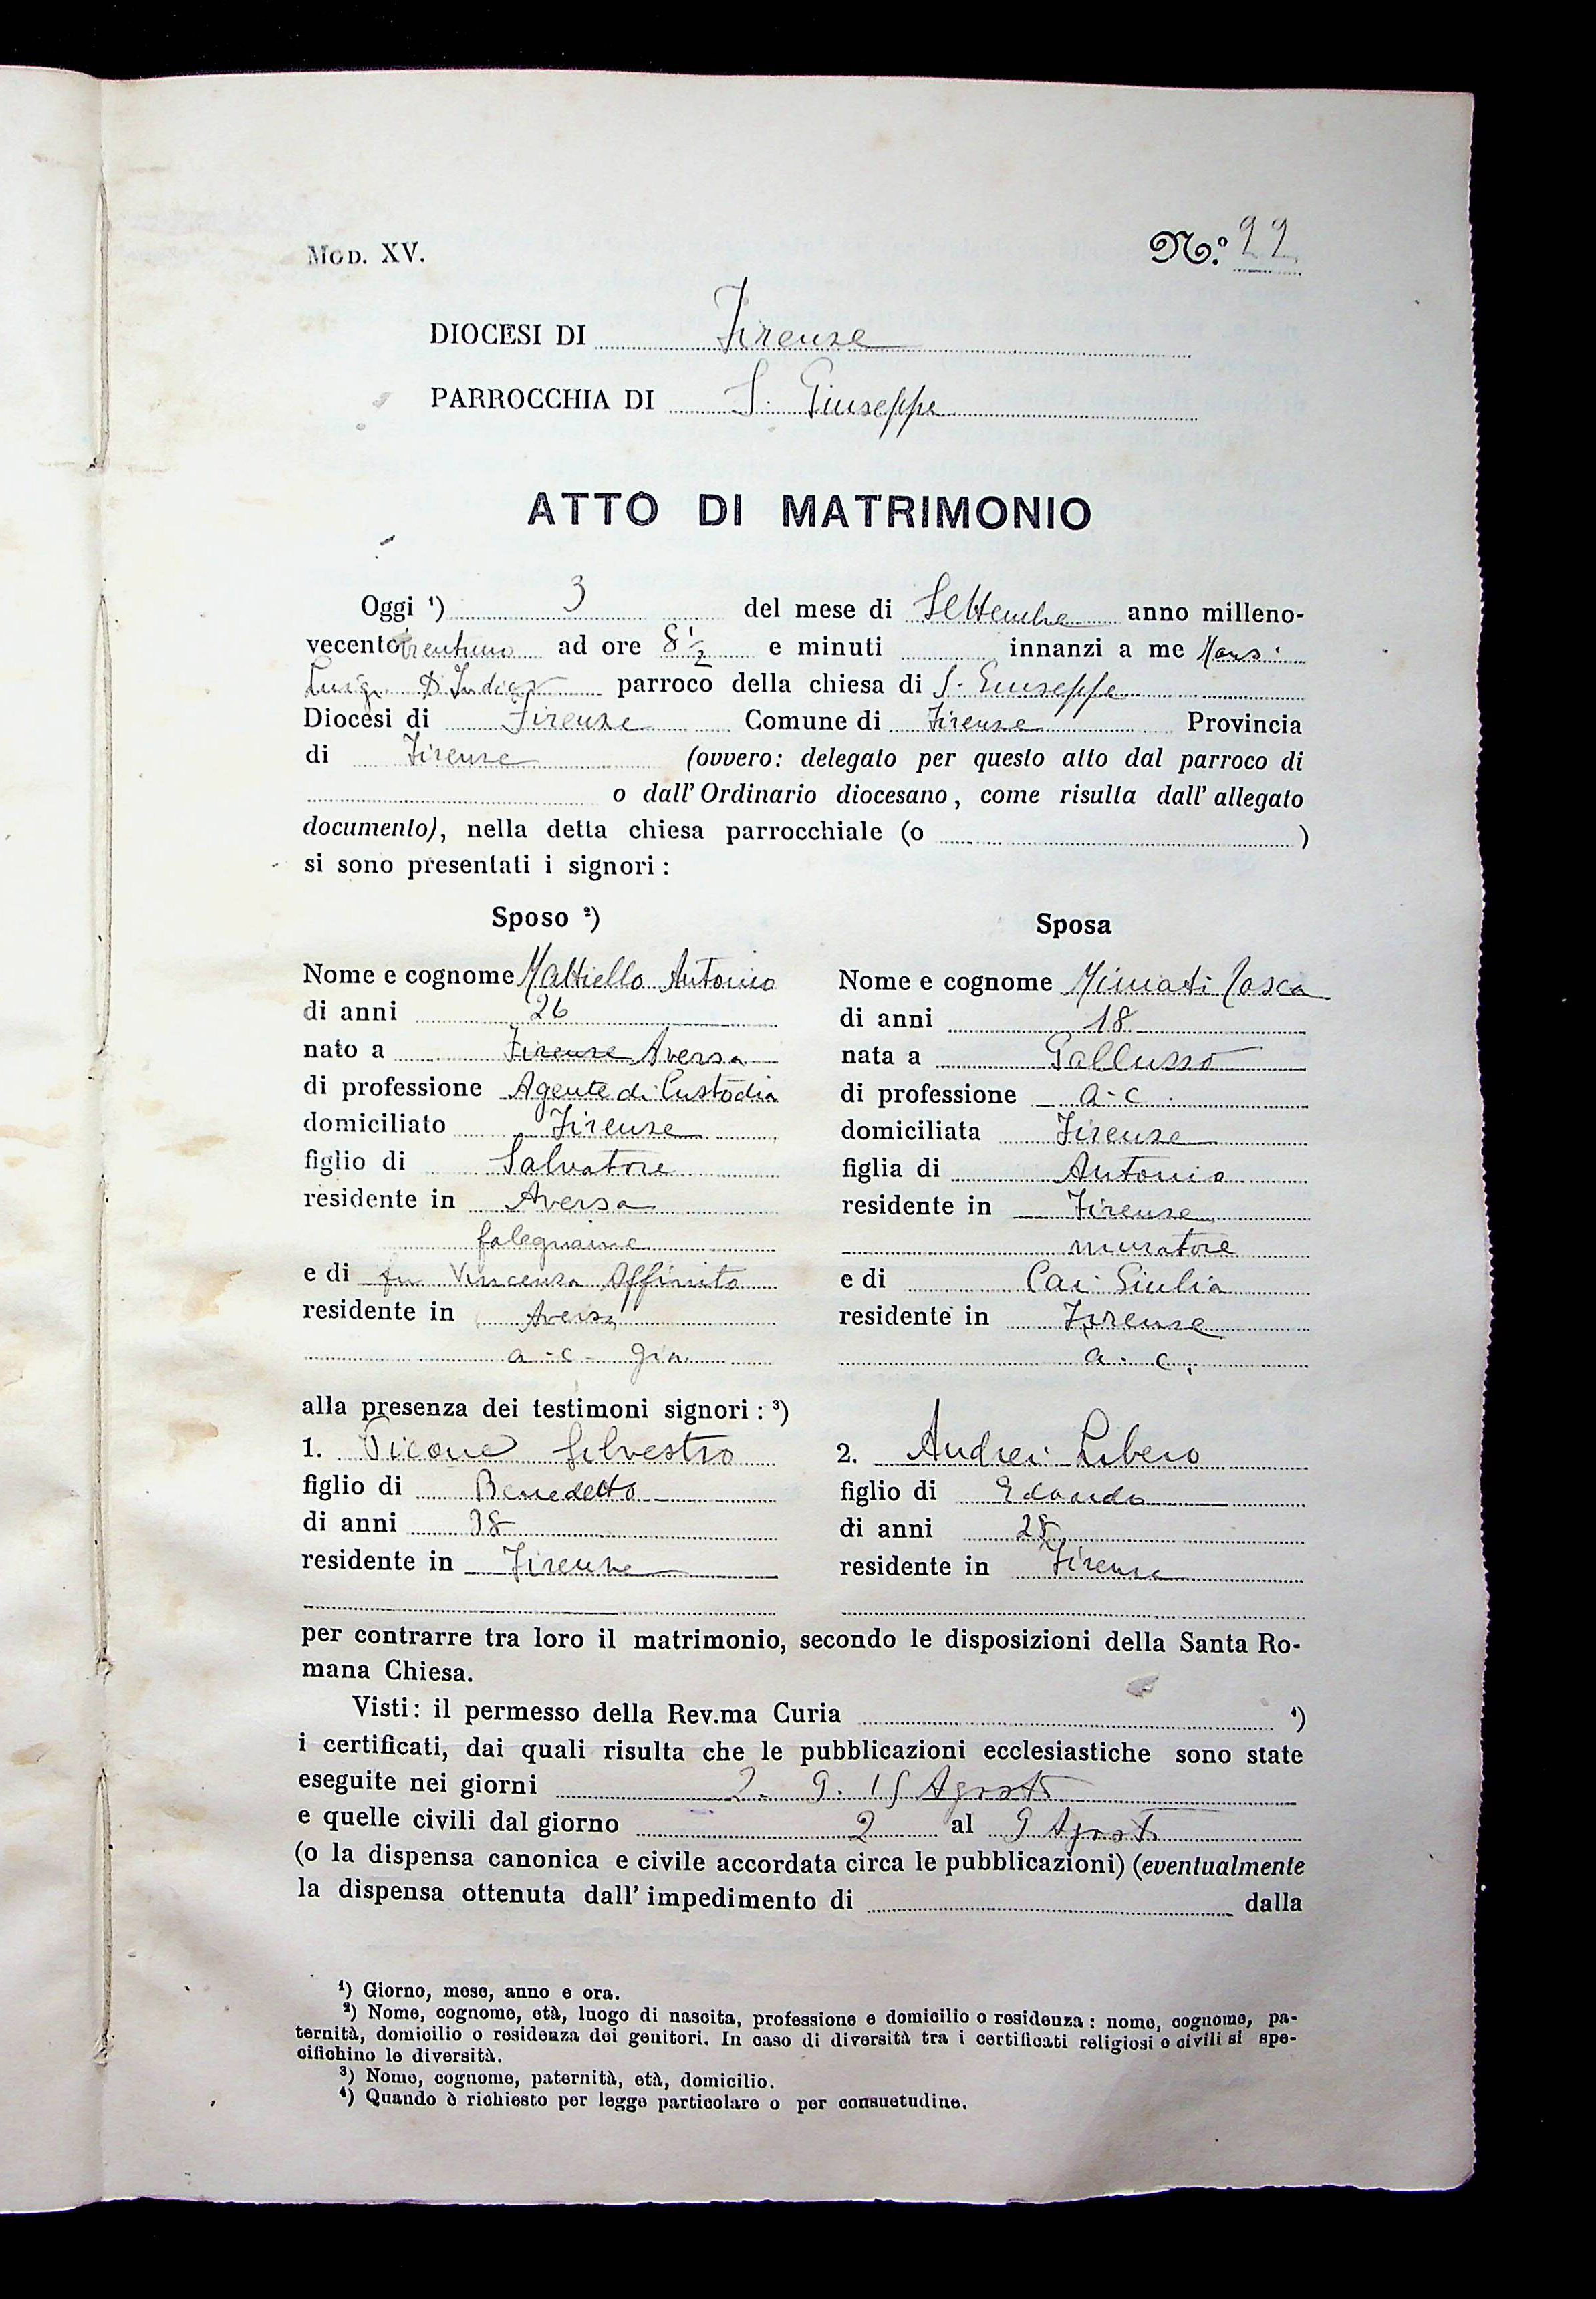 MOD. XV.
N.º 22
DIOCESI DI Firenze
PARROCCHIA DI S. Giuseppe
ATTO DI MATRIMONIO
Oggi ¹) 3 del mese di Settembre anno milleno-
vecentotrentuno ad ore 8½ e minuti innanzi a me Mons.
Luigi D'Indico parroco della chiesa di S. Giuseppe
Diocesi di Firenze Comune di Firenze Provincia
di Firenze (ovvero: delegato per questo atto dal parroco di
o dall'Ordinario diocesano, come risulta dall'allegato
documento), nella detta chiesa parrocchiale (o )
si sono presentati i signori:
Sposo ²)
Nome e cognome Mattiello Antonio
di anni 26
nato a Firenze Aversa
di professione Agente di Custodia
domiciliato Firenze
figlio di Salvatore
residente in Aversa
falegname
e di fu Vincenza Affinito
residente in Aversa
a - c - gia
Sposa
Nome e cognome Miniati Tosca
di anni 18
nata a Galluzzo
di professione a - c.
domiciliata Firenze
figlia di Antonio
residente in Firenze
muratore
e di Cai Giulia
residente in Firenze
a. c.
alla presenza dei testimoni signori: ³)
1. Picone Silvestro
figlio di Benedetto
di anni 38
residente in Firenze
2. Andrei Libero
figlio di Edoardo
di anni 28
residente in Firenze
per contrarre tra loro il matrimonio, secondo le disposizioni della Santa Ro-
mana Chiesa.
Visti: il permesso della Rev.ma Curia ⁴)
i certificati, dai quali risulta che le pubblicazioni ecclesiastiche sono state
eseguite nei giorni 2. 9. 15 Agosto
e quelle civili dal giorno 2 al 9 Agosto
(o la dispensa canonica e civile accordata circa le pubblicazioni) (eventualmente
la dispensa ottenuta dall'impedimento di dalla
¹) Giorno, mese, anno e ora.
²) Nome, cognome, età, luogo di nascita, professione e domicilio o residenza: nome, cognome, pa-
ternità, domicilio o residenza dei genitori. In caso di diversità tra i certificati religiosi e civili si spe-
cifichino le diversità.
³) Nome, cognome, paternità, età, domicilio.
⁴) Quando è richiesto per legge particolare o per consuetudine.